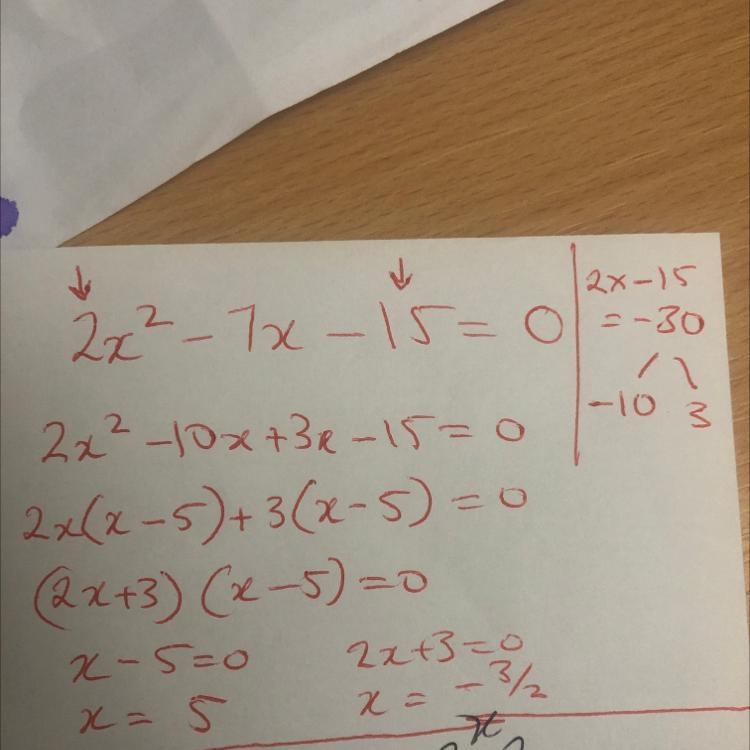 2x² - 7x - 15 = 0
2x - 15
= -30
-10 3
2x² - 10x + 3x - 15 = 0
2x(x - 5) + 3(x - 5) = 0
(2x + 3) (x - 5) = 0
x - 5 = 0 2x + 3 = 0
x = 5 x = -3/2
x